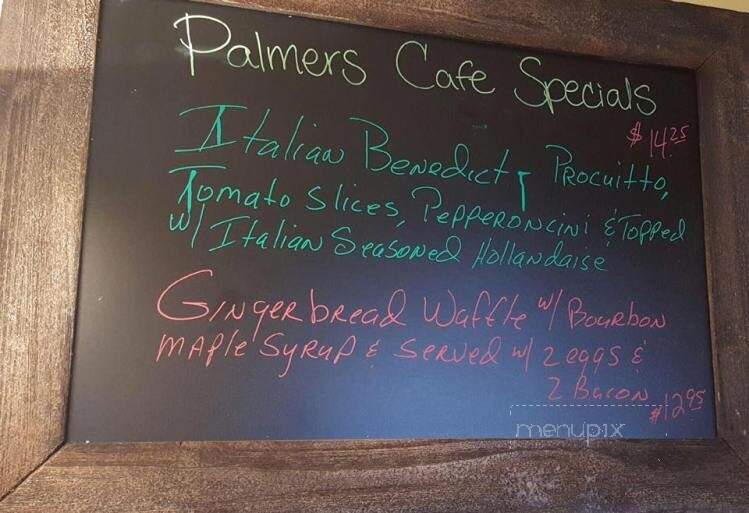 Palmers Cafe Specials
$14.25
Italian Benedict, Procuitto,
Tomato Slices, Pepperoncini & Topped
w/ Italian Seasoned Hollandaise
Gingerbread Waffle w/ Bourbon
Maple Syrup & Served w/ 2 eggs &
2 Bacon
$12.95
menupix